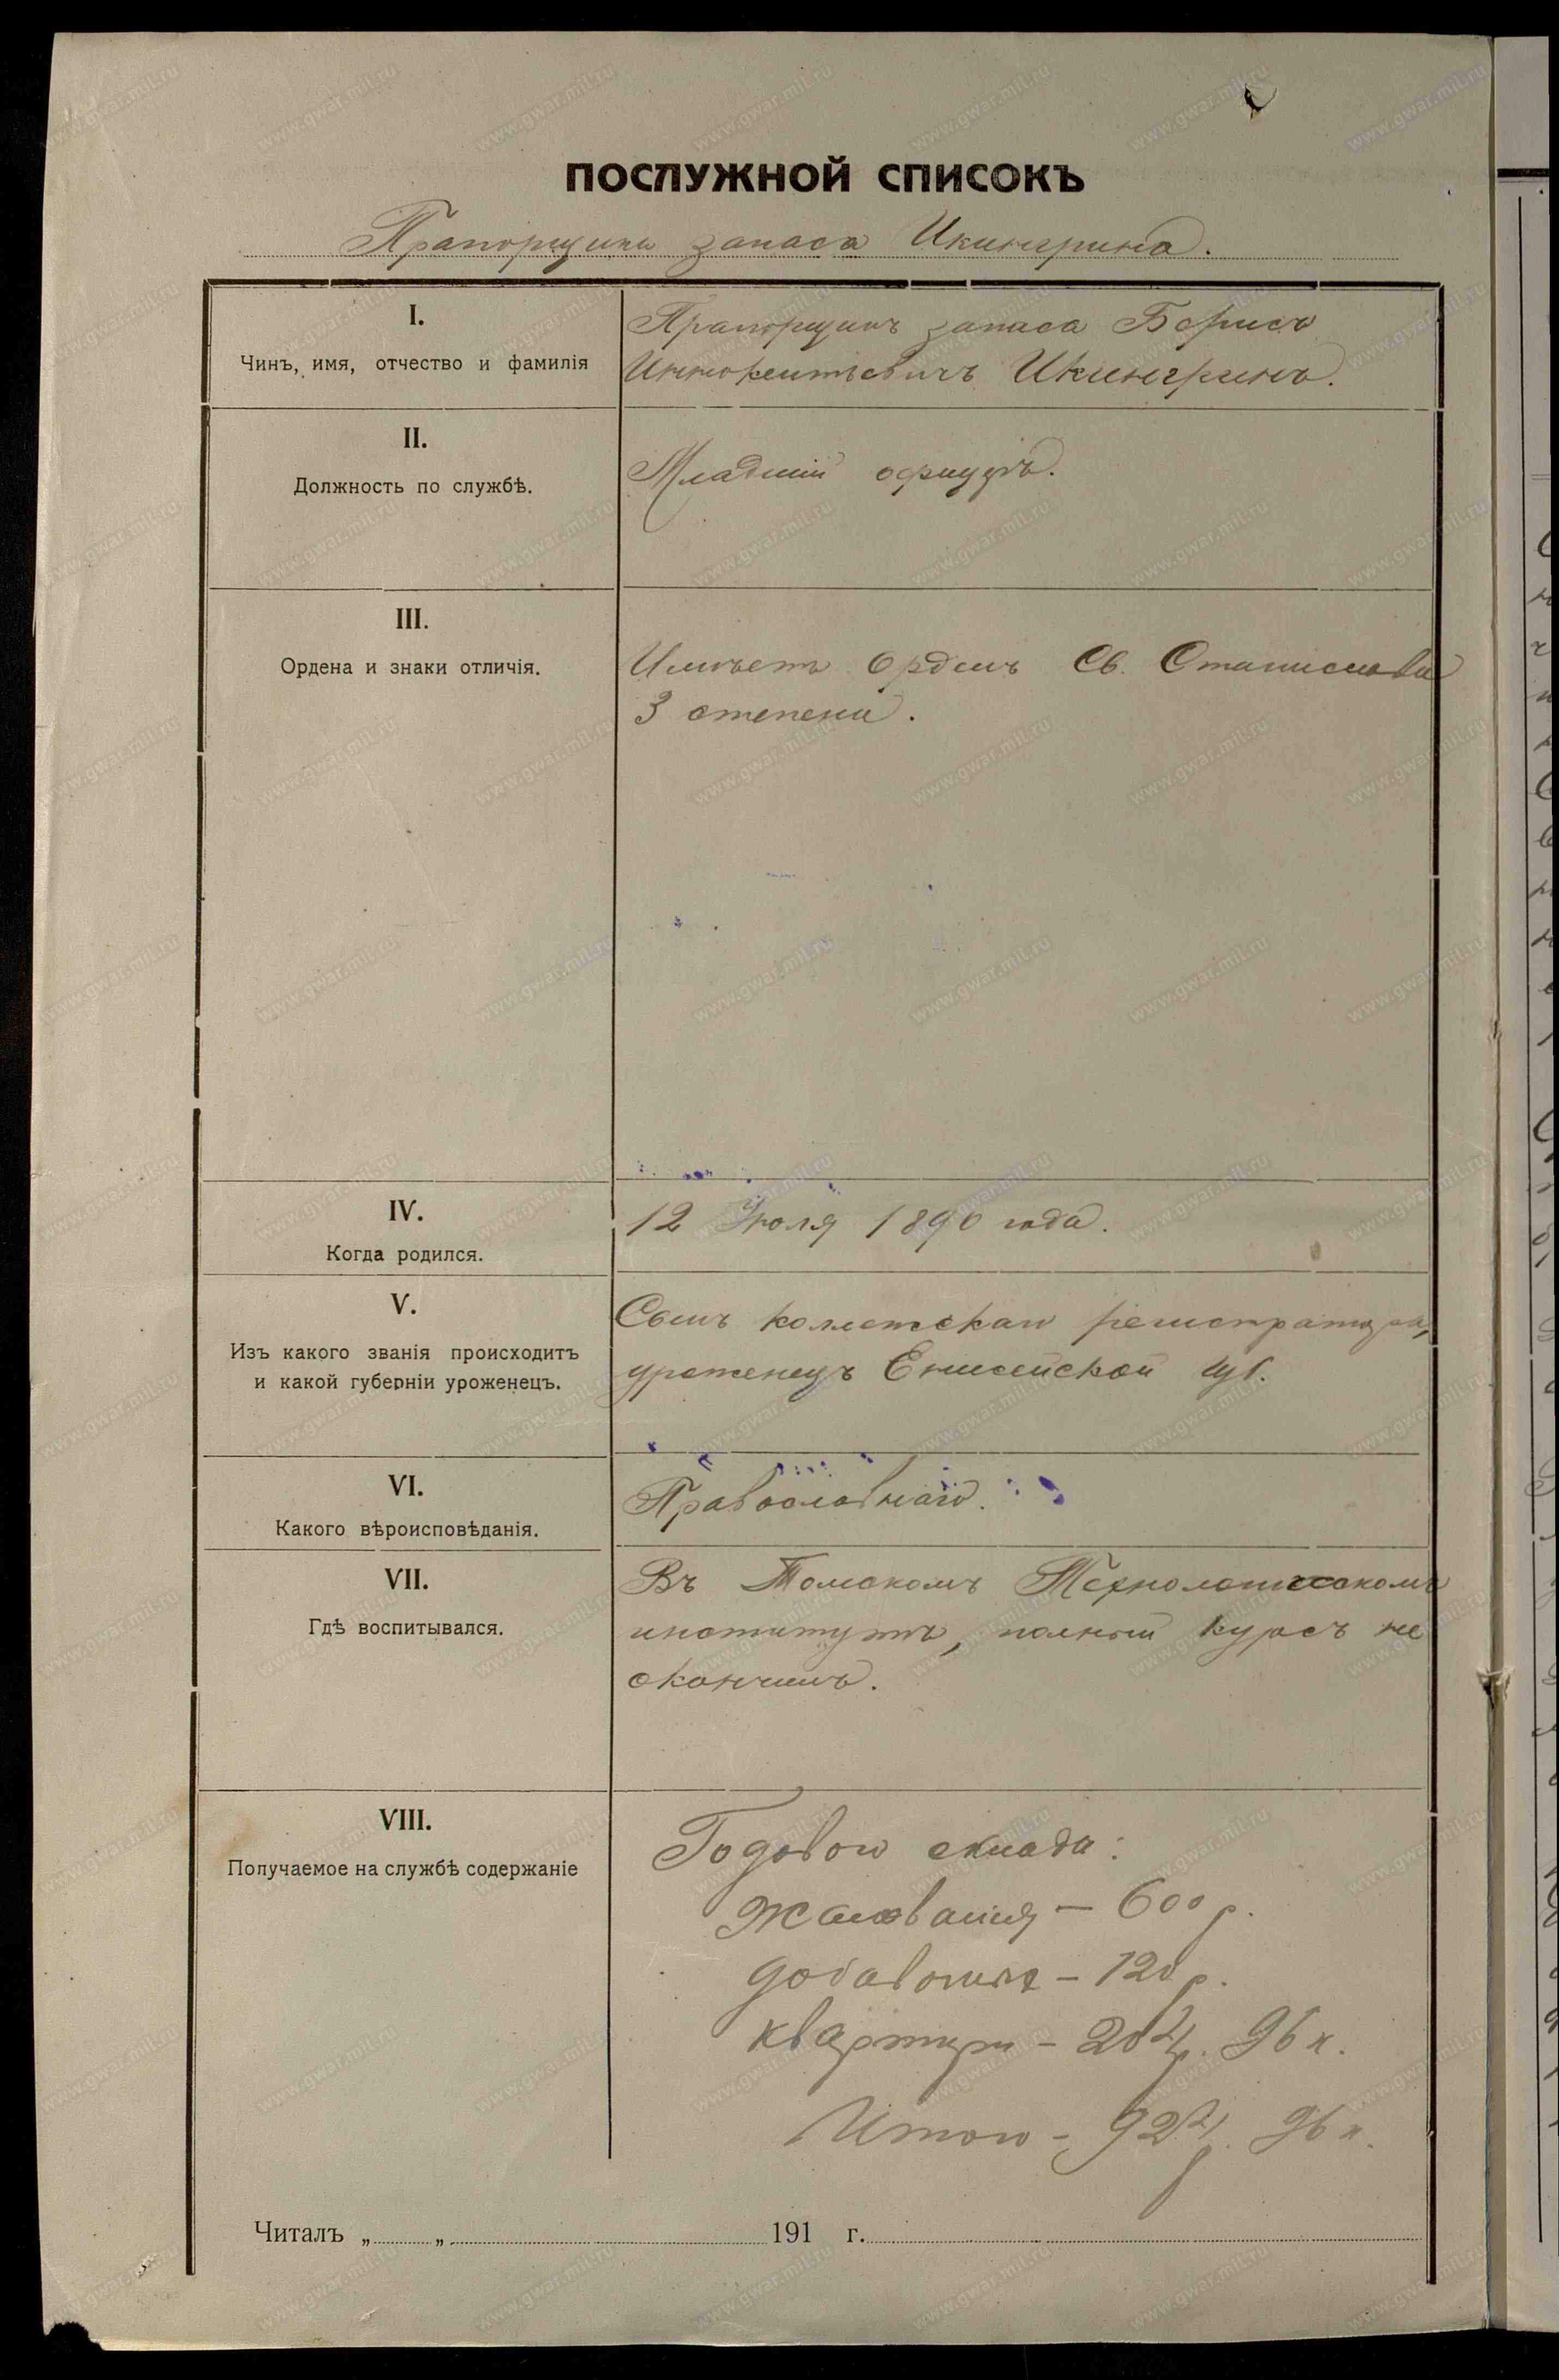 ПОСЛУЖНОЙ СПИСОКЪ
Прапорщика запаса Икингрина.
I.
Чинъ, имя, отчество и фамилія
Прапорщикъ запаса Борисъ
Иннокентьевичъ Икингринъ.
II.
Должность по службѣ.
Младшій офицеръ.
III.
Ордена и знаки отличія.
Имѣетъ орденъ Св. Станислава
3 степени.
IV.
Когда родился.
12 Іюля 1890 года.
V.
Изъ какого званія происходитъ
и какой губерніи уроженецъ.
Сынъ коллежскаго регистратора,
уроженецъ Енисейской губ.
VI.
Какого вѣроисповѣданія.
Православнаго.
VII.
Гдѣ воспитывался.
Въ Томскомъ Технологическомъ
институтѣ, полный курсъ не
окончилъ.
VIII.
Получаемое на службѣ содержаніе
Годового оклада:
Жалованія – 600 р.
добавочныхъ – 120 р.
квартирн – 204 р. 96 к.
Итого – 924 р. 96 к.
Читалъ „ „ 191 г.
www.gwar.mil.ru